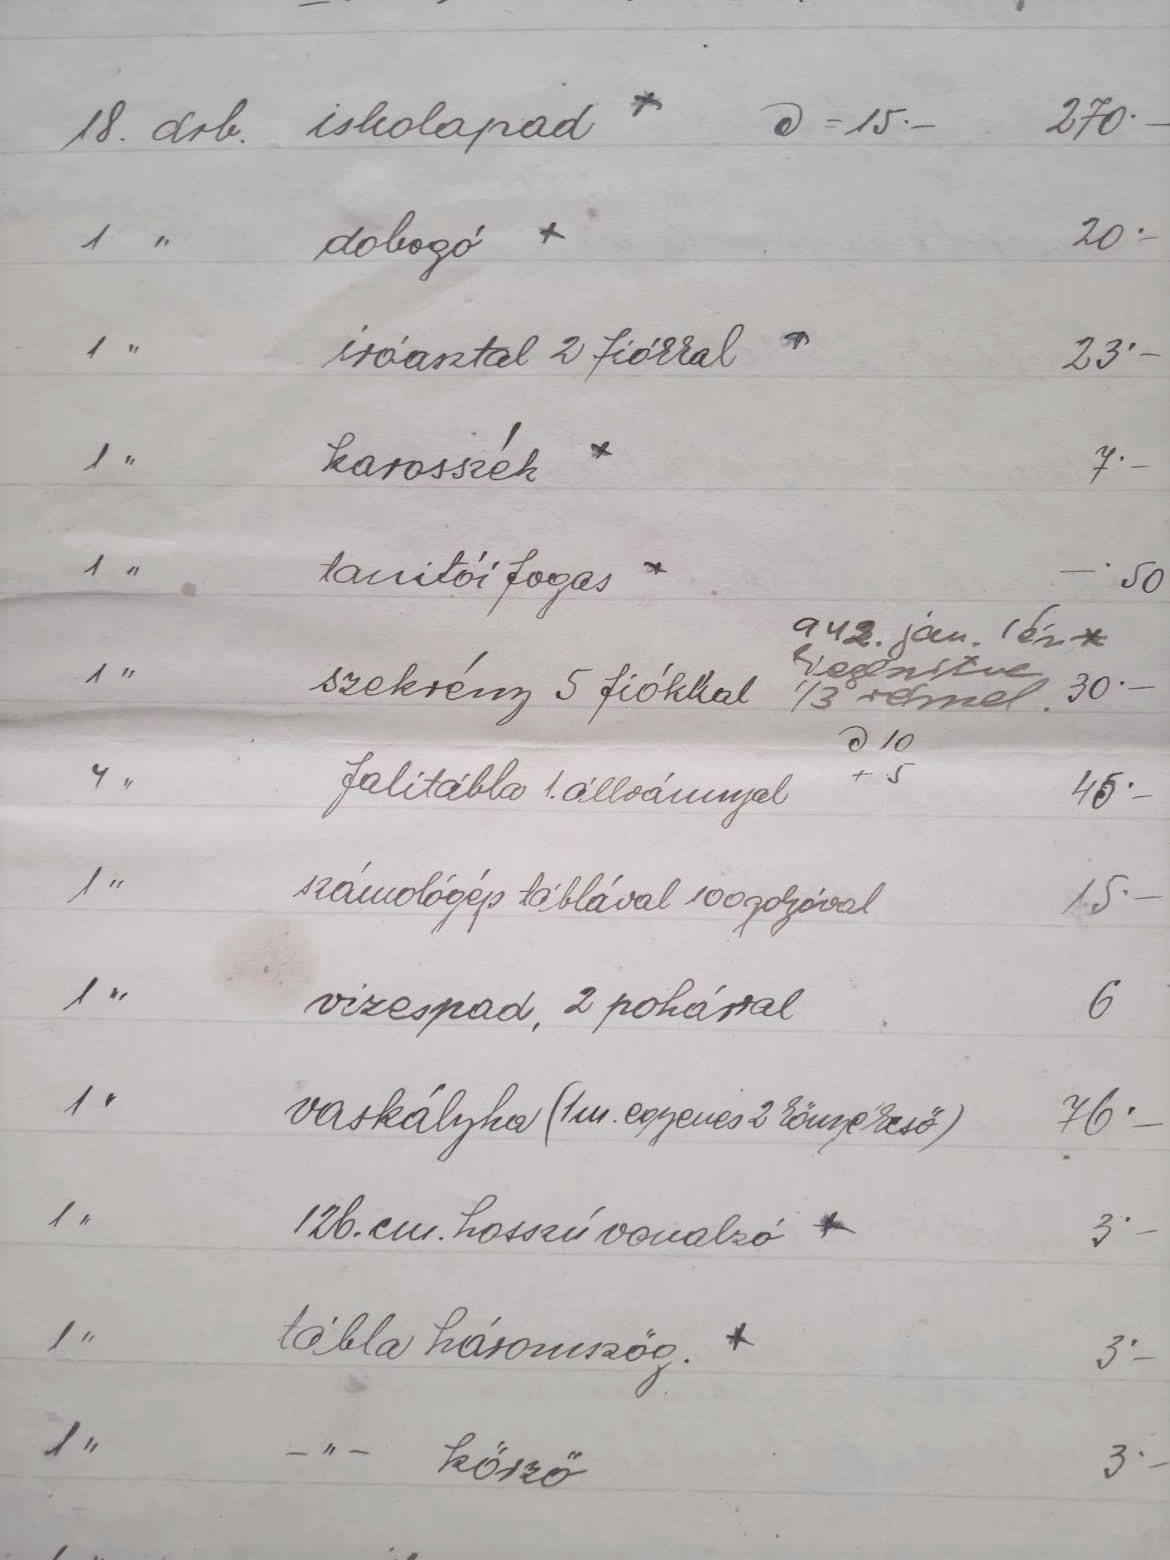 18. drb. iskolapad * ∂ = 15·— 270·—
1 " dobogó + 20·—
1 " iróasztal 2 fiókkal * 23·—
1 " karosszék * 7·—
1 " tanitói fogas * —·50
942. jan. 1én *
1 " szekrény 5 fiókkal 1/3 résznel. 30·—
∂ 10
+ 5
4 " falitábla 1. állvánnyal 45·—
1 " számológép táblával 100 golyóval 15·—
1 " vizespad, 2 pohárral 6
1 " vaskályha (1m. egyenes 2 könyékcső) 76·—
1 " 126. cm. hosszú vonalzó * 3·—
1 " tábla háromszög. * 3·—
1 " — " — körző 3·—